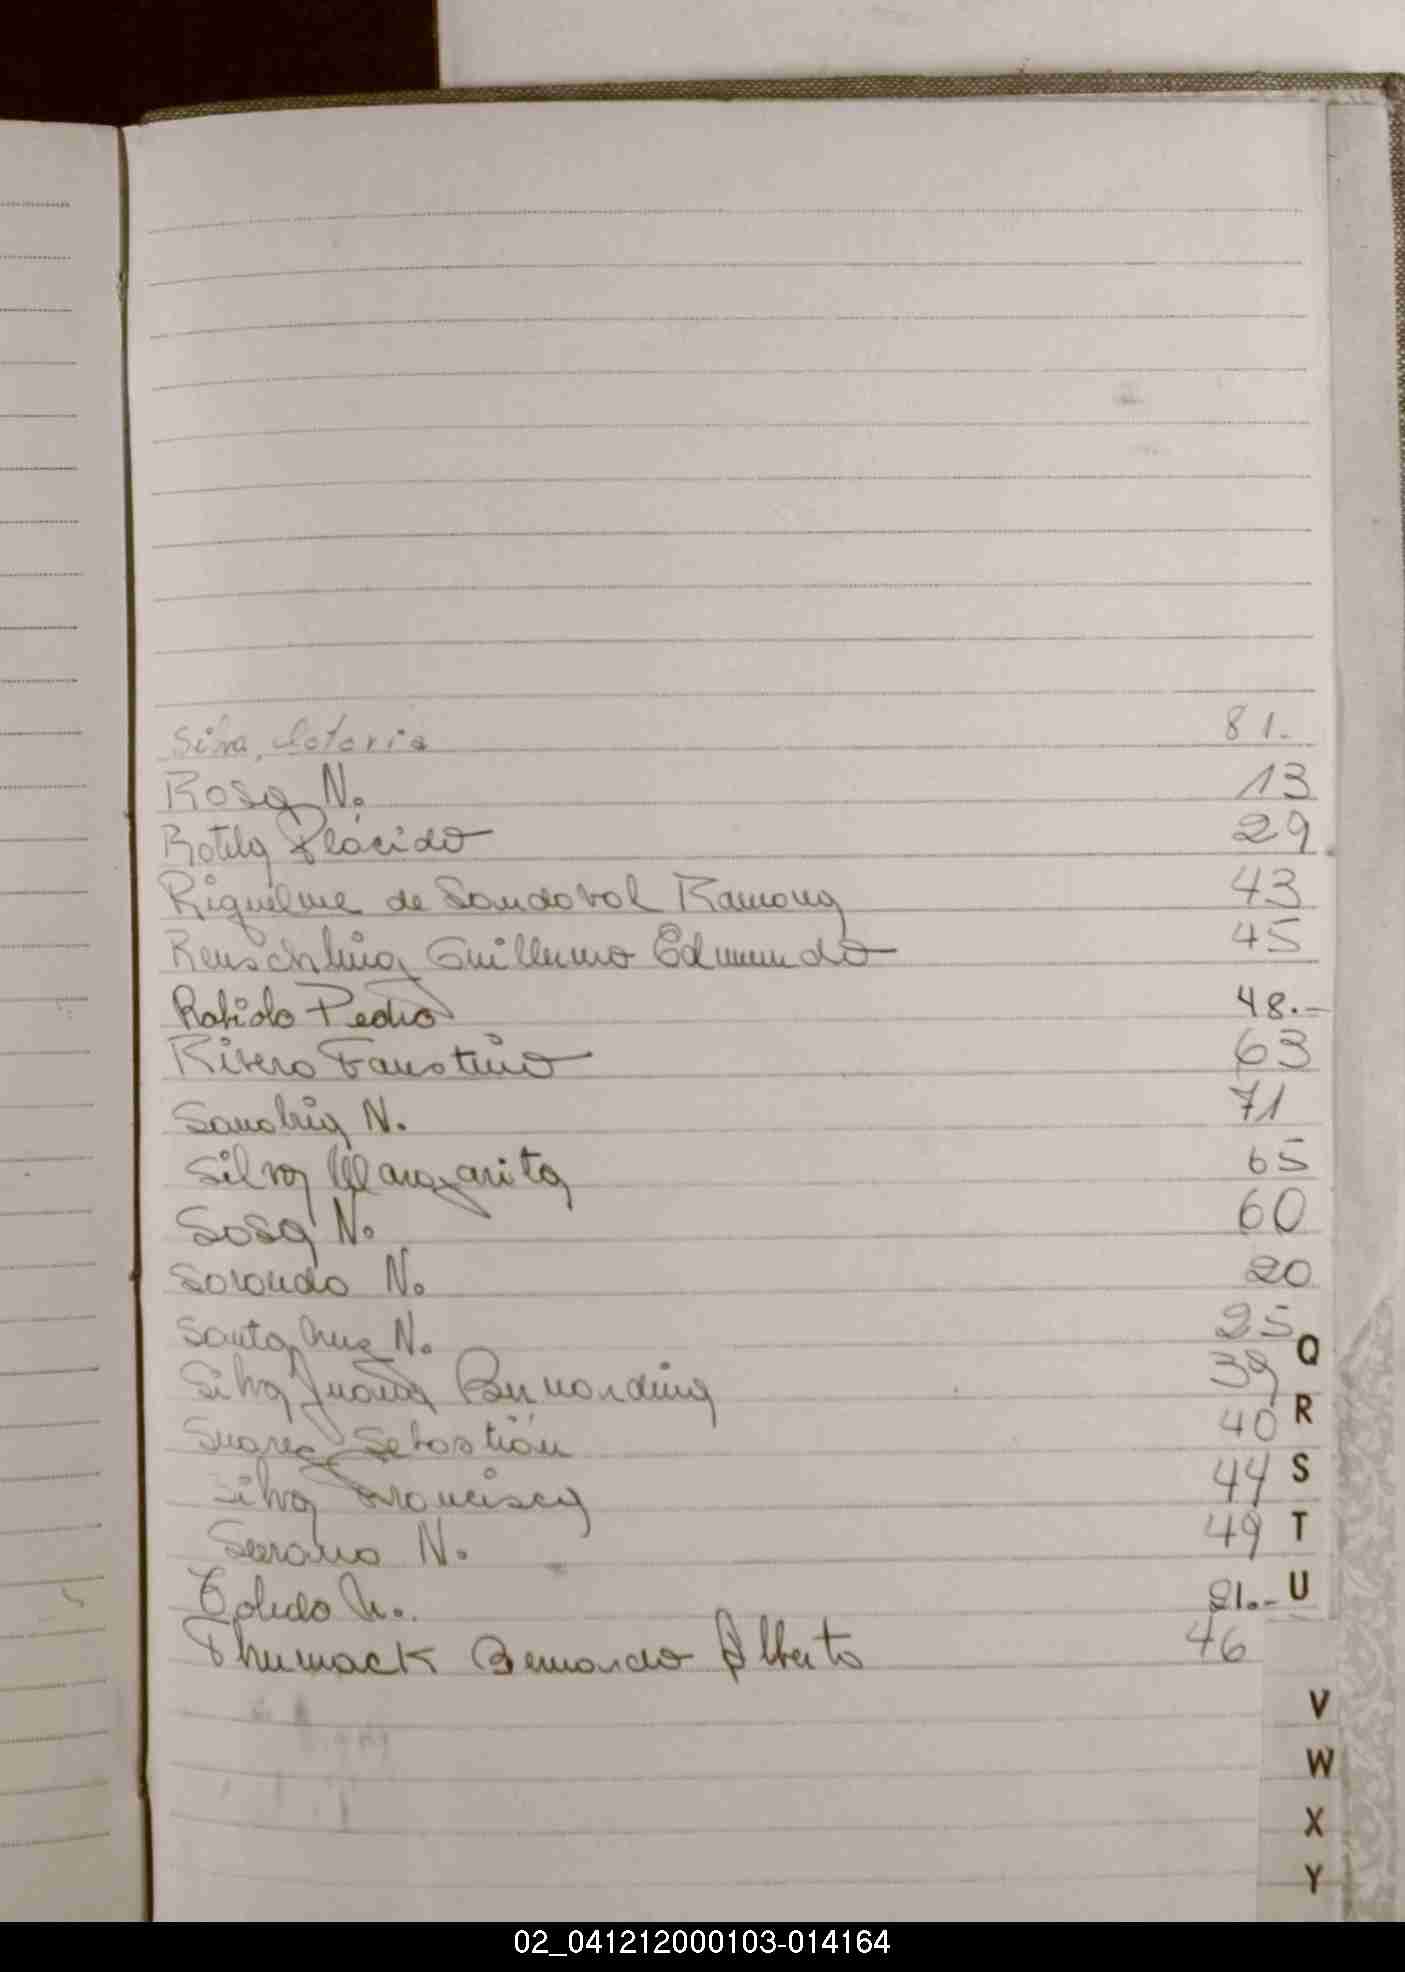 Silva, 81.
Rosa N. 13
Rotela Plácido 29
Riquelme de Sandoval Ramona 43
Reuschling Guillermo Edmundo 45
Robido Pedro 48.-
Rivero Faustino 63
Sanabria N. 71
Silva Margarita 65
Sosa N. 60
Sorondo N. 20
Santa Cruz N. 25
Silva Juana Bernardina 39
Suarez Sebastián 40
Silva Francisca 44
Serano N. 49
Toledo N. 21.-
Thumack Bernardo Alberto 46
Q
R
S
T
U
V
W
X
Y
02_041212000103-014164